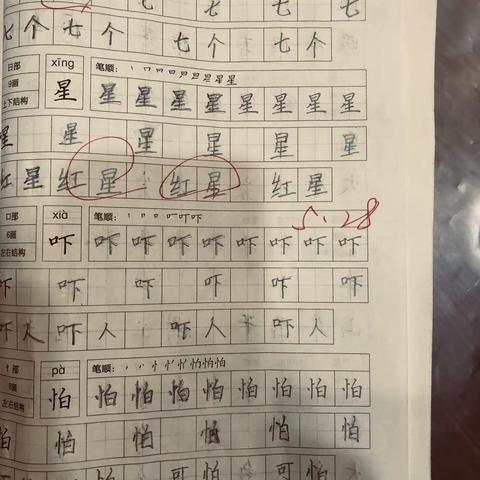 七 七 七 七
七 个 七 七 个 七 个
日部 xīng 笔顺：丨 冂 日 日 旦 早 旱 星 星
9画
上下结构 星 星 星 星 星 星 星 星 星
星 星 星 星 星 星
红 星 红 星 红 星 红 星
5.28
口部 xià 笔顺：丨 口 口 叮 吓 吓
6画
左右结构 吓 吓 吓 吓 吓 吓 吓 吓 吓
吓 吓 吓 吓 吓 吓
吓 人 吓 人 吓 人 吓 人
忄部 pà 笔顺：
左右结构 怕 怕 怕 怕 怕 怕 怕 怕 怕
怕 怕 怕 怕 怕 怕
怕 可 怕 可 怕